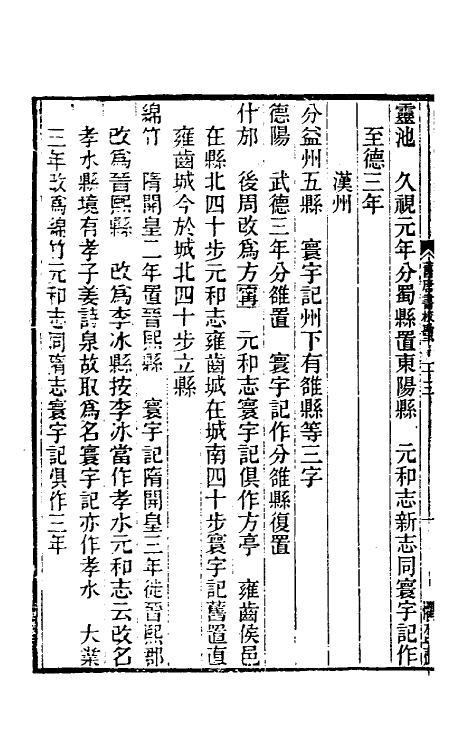 靈池　久視元年分蜀縣置東陽縣　元和志新志同寰宇記作
至德三年
漢州
分益州五縣　寰宇記州下有雒縣等三字
德陽　武德三年分雒置　寰宇記作分雒縣復置
什邡　後周改爲方寧　元和志寰宇記俱作方亭　雍齒侯邑
在縣北四十步元和志雍齒城在城南四十步寰宇記舊置直
雍齒城今於城北四十步立縣
綿竹　隋開皇二年置晉熙縣　寰宇記隋開皇三年徙晉熙郡
改爲晉熙縣　改爲李冰縣按李冰當作孝水元和志云改名
孝水縣境有孝子姜詩泉故取爲名寰宇記亦作孝水　大業
三年改爲綿竹元和志同隋志寰宇記俱作二年
舊唐書校